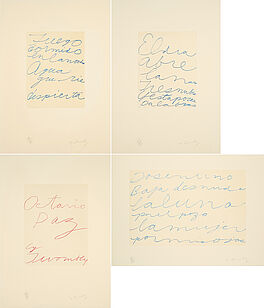 Fuego
dormido
en la noche
Agua
que rie
despierta
El dia
abre
la mano
Tres nubes
y estas pocas
palabras
Octavio
Paz
Cy
Twombly
Baja desnuda
la luna
por el pozo
la mujer
por mis ojos